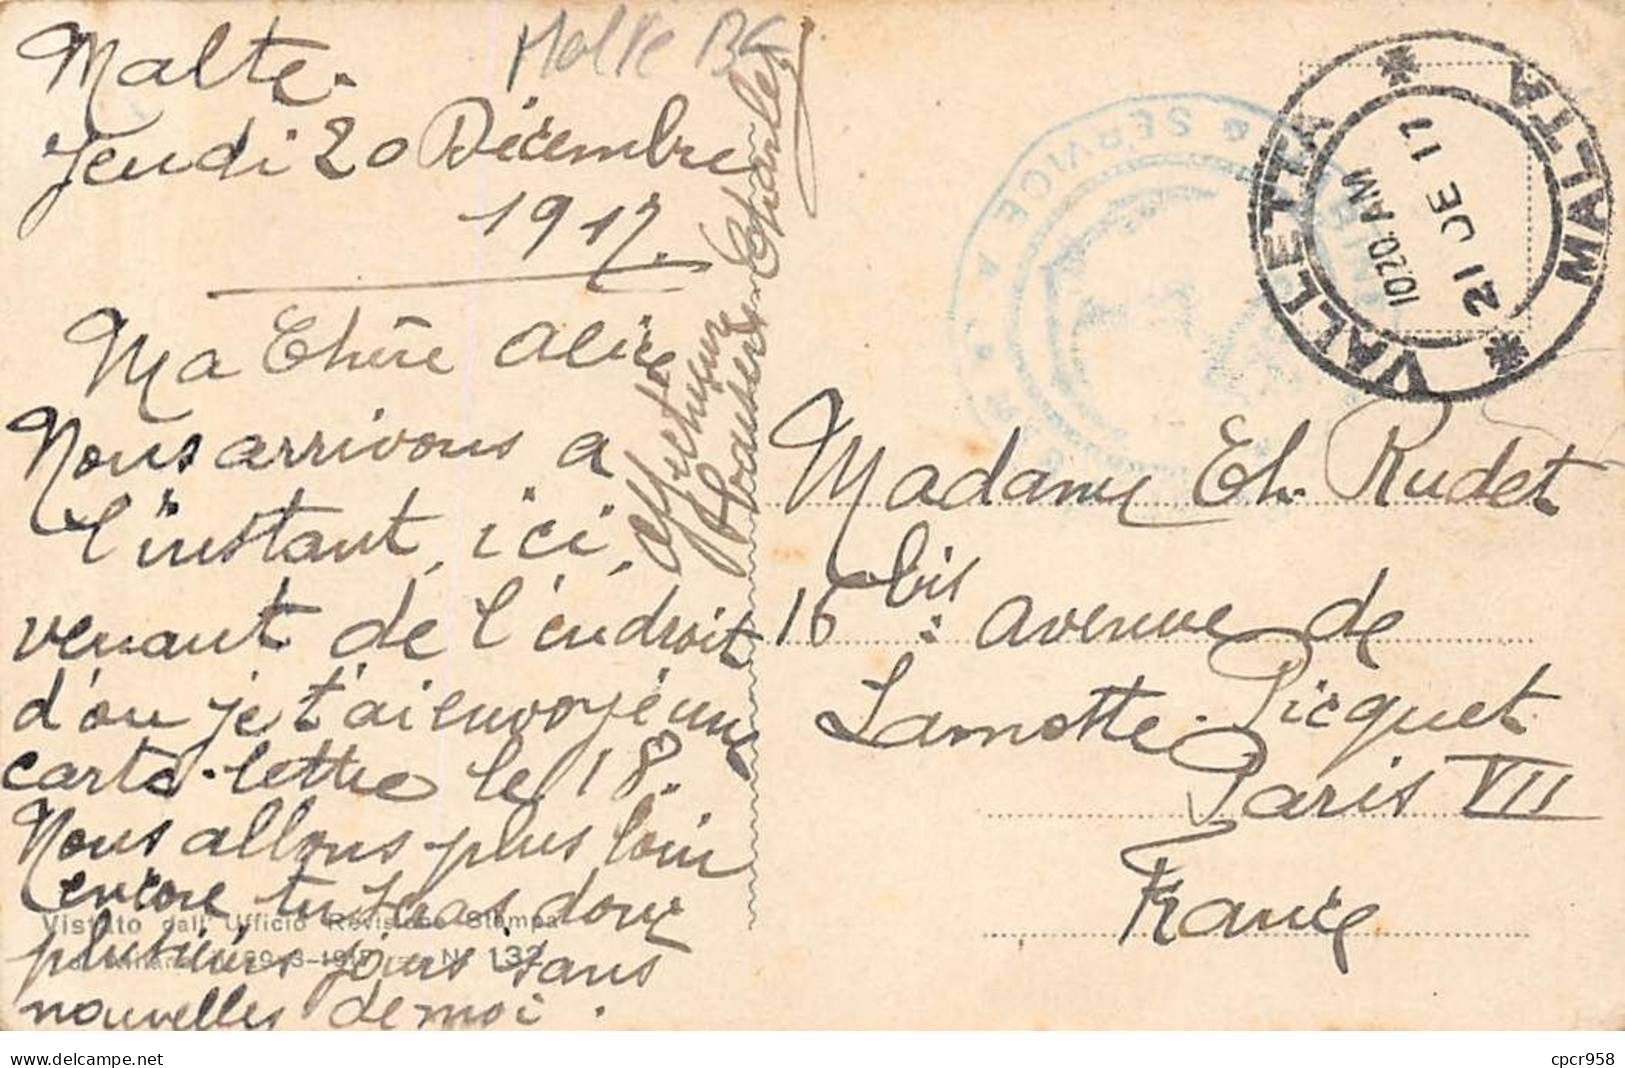 Malte.
Malte BG
Jeudi 20 Décembre
1917.
Ma Chère Alice
Nous arrivons a
l'instant, ici,
venant de l'endroit
d'ou je t'ai envoyé une
carte-lettre le 18.
Nous allons plus loin
encore tu seras donc
plusieurs jours sans
nouvelles de moi.
Affectueux
baisers
Charles
Vistato dall' Ufficio Revisione Stampa
N. 132
SERVICE A
VALLETTA * MALTA *
10.20. AM
21 DE 17
Madame Ch. Rudet
16 bis: avenue de
Lamotte-Picquet
Paris VII
France
cpcr958